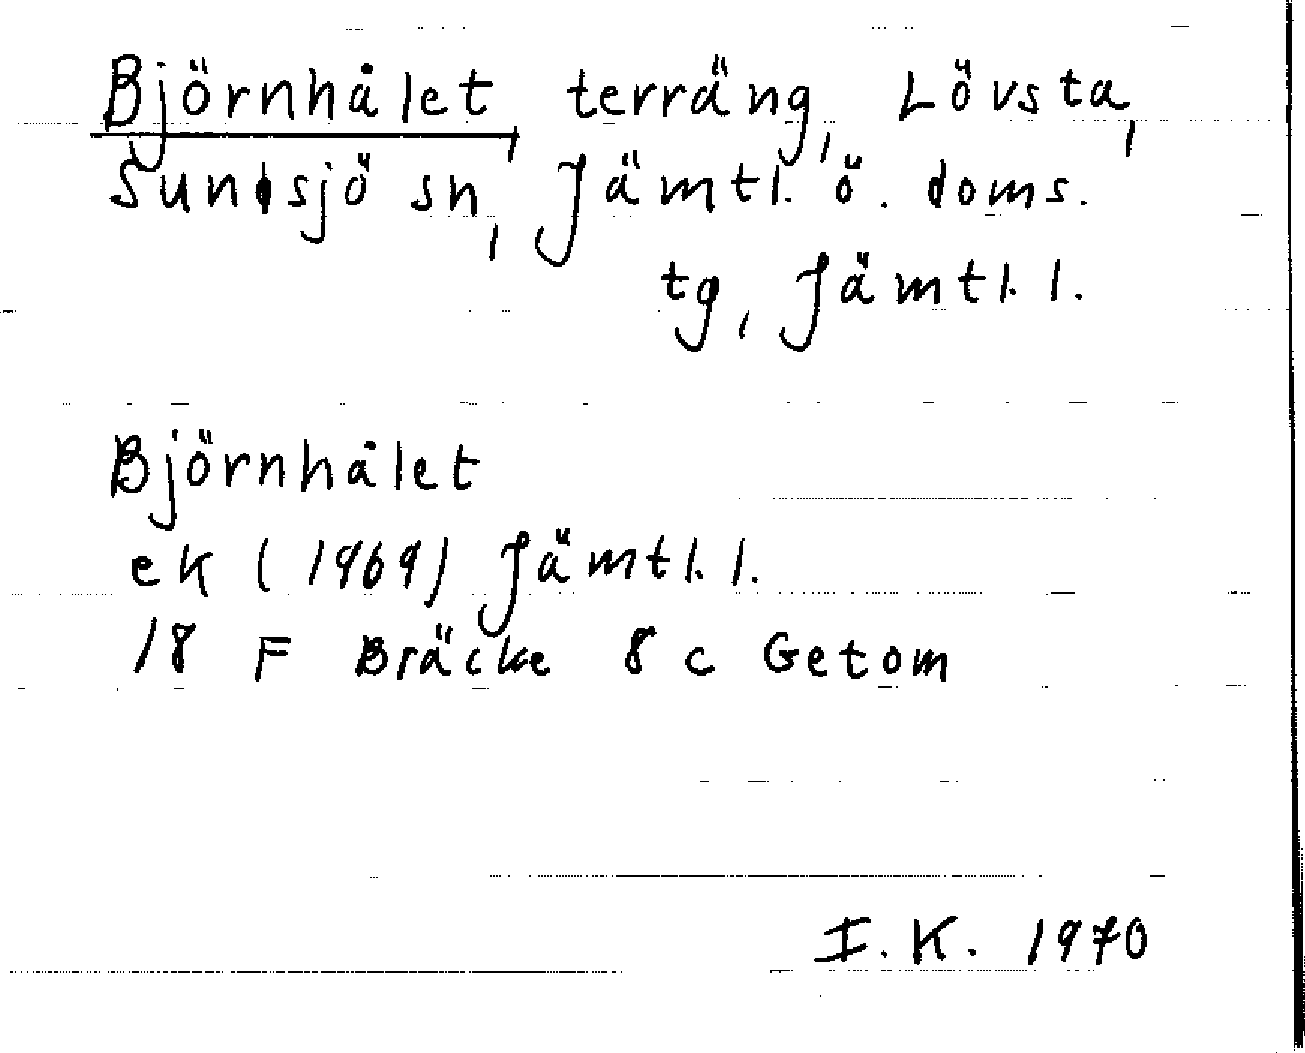 Björnhålet, terräng, Lövsta,
Sundsjö sn, Jämtl. ö. doms.
tg, Jämtl. l.
Björnhålet
ek (1969) Jämtl. l.
18 F Bräcke 8 c Getom
I. K. 1970